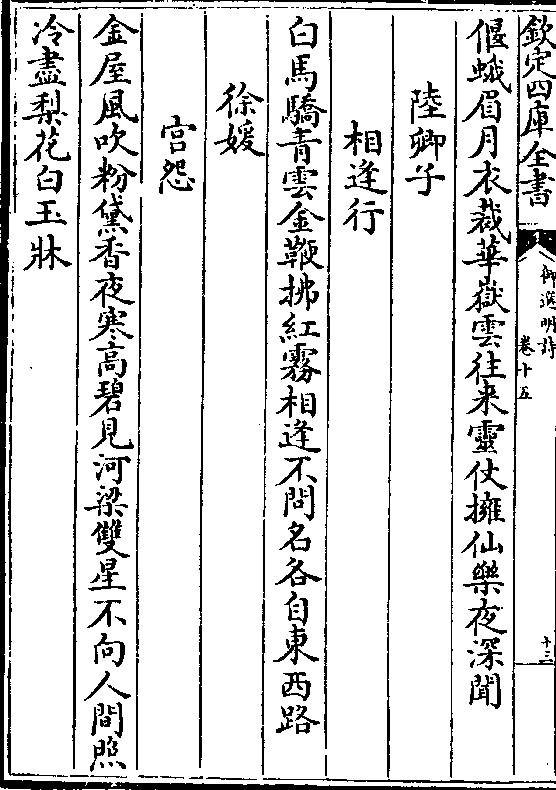 欽定四庫全書
御選明詩
卷十五
十三
偃蛾眉月衣裁華嶽雲往来靈仗擁仙樂夜深聞
陸卿子
相逢行
白馬驕青雲金鞭拂紅霧相逢不問名各自東西路
徐媛
宫怨
金屋風吹粉黛香夜寒高碧見河梁雙星不向人間照
冷盡梨花白玉牀